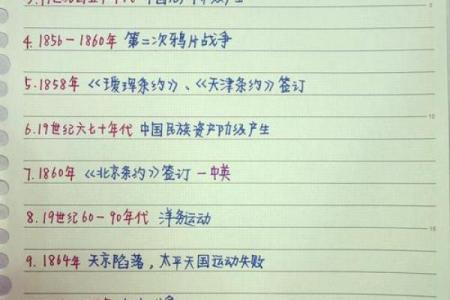 4. 1856-1860年 第二次鸦片战争
5. 1858年 《瑷珲条约》、《天津条约》签订
6. 19世纪六七十年代 中国民族资产阶级产生
7. 1860年 《北京条约》签订 -中英
8. 19世纪60-90年代 洋务运动
9. 1864年 天京陷落，太平天国运动失败